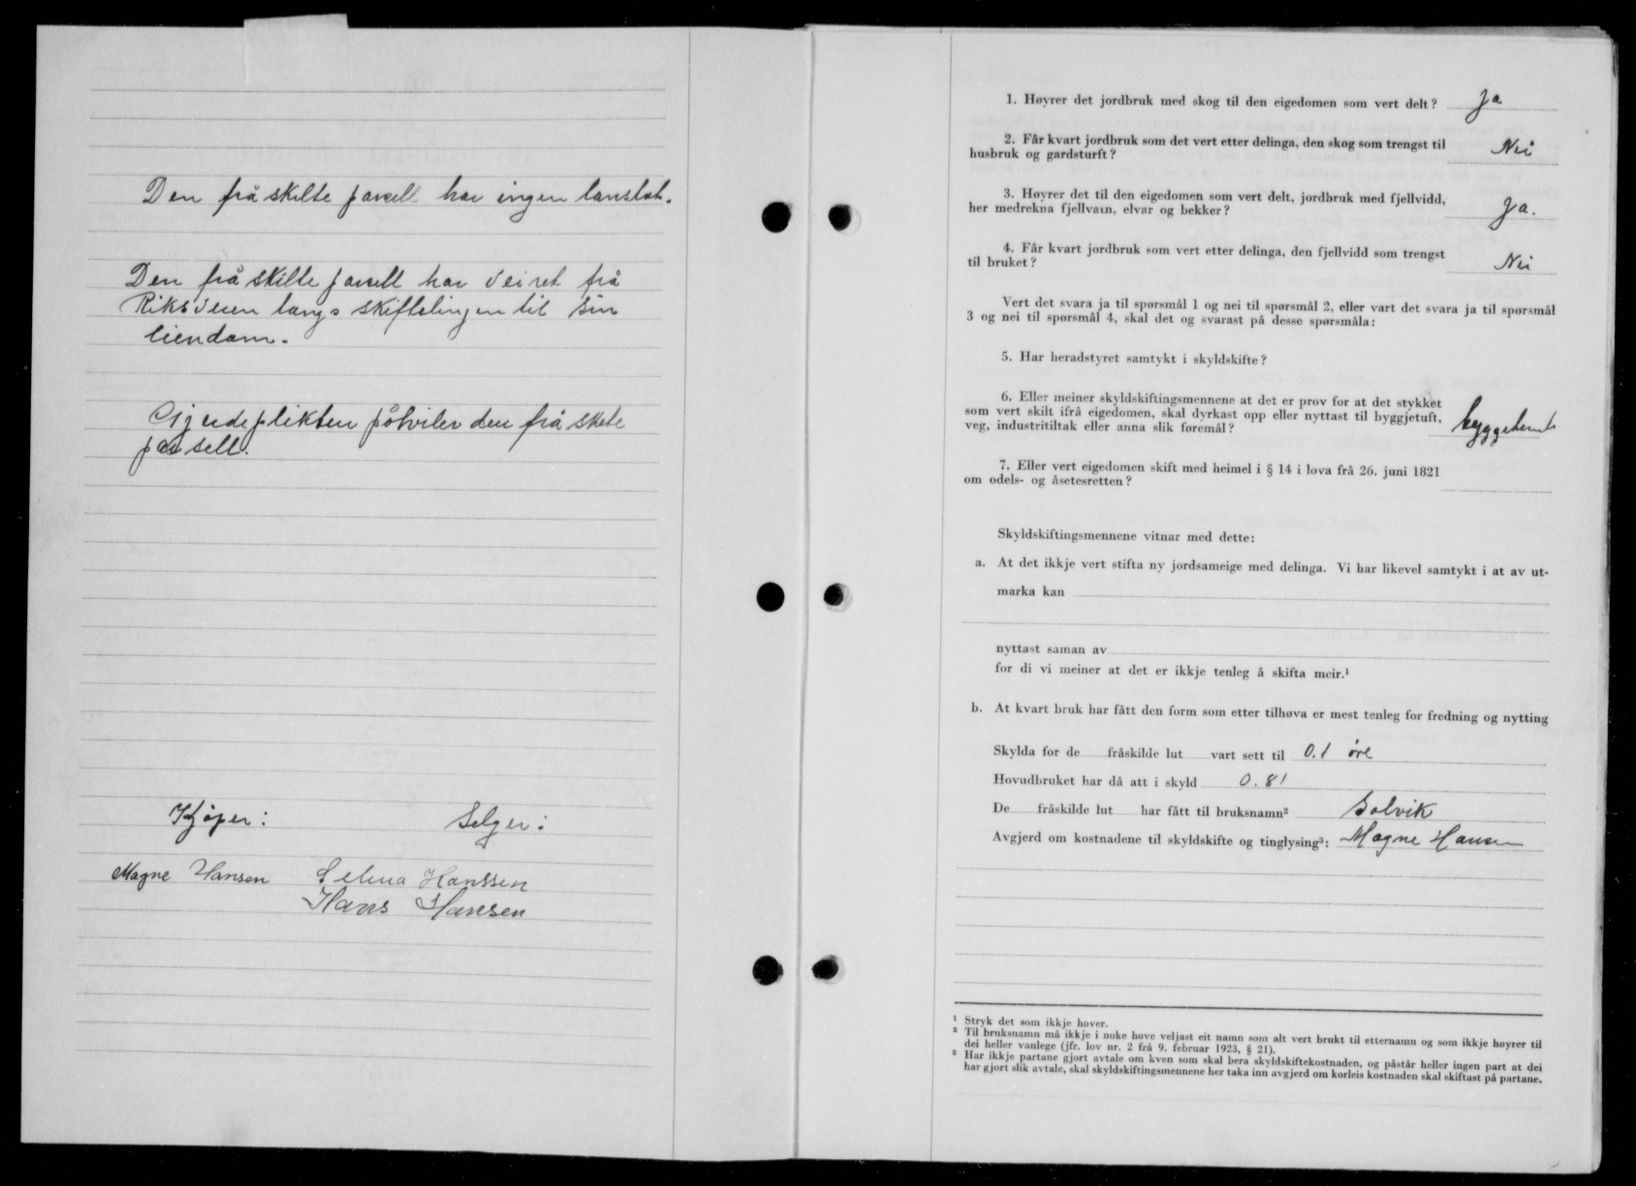 Den frå skilte parsell har ingen
Den frå skilte parsell har veiret frå
Riksveien langs skiftelinjen til sin
eiendom.
Gjerdeplikten påhviler den frå skilte
parsell.
Kjøper: Selger:
Magne Hansen Selma Hanssen
Hans Hansen
1. Høyrer det jordbruk med skog til den eigedomen som vert delt? Ja
2. Får kvart jordbruk som det vert etter delinga, den skog som trengst til
husbruk og gardsturft? Nei
3. Høyrer det til den eigedomen som vert delt, jordbruk med fjellvidd,
her medrekna fjellvatn, elvar og bekker? Ja.
4. Får kvart jordbruk som vert etter delinga, den fjellvidd som trengst
til bruket? Nei
Vert det svara ja til spørsmål 1 og nei til spørsmål 2, eller vart det svara ja til spørsmål
3 og nei til spørsmål 4, skal det og svarast på desse spørsmåla:
5. Har heradstyret samtykt i skyldskifte?
6. Eller meiner skyldskiftingsmennene at det er prov for at det stykket
som vert skilt ifrå eigedomen, skal dyrkast opp eller nyttast til byggjetuft,
veg, industritiltak eller anna slik føremål? byggetomt
7. Eller vert eigedomen skift med heimel i § 14 i lova frå 26. juni 1821
om odels- og åsetesretten?
Skyldskiftingsmennene vitnar med dette:
a. At det ikkje vert stifta ny jordsameige med delinga. Vi har likevel samtykt i at av ut-
marka kan
nyttast saman av
for di vi meiner at det er ikkje tenleg å skifta meir.¹
b. At kvart bruk har fått den form som etter tilhøva er mest tenleg for fredning og nytting
Skylda for de fråskilde lut vart sett til 0.1 øre
Hovudbruket har då att i skyld 0.81
De fråskilde lut har fått til bruksnamn² Solvik
Avgjerd om kostnadene til skyldskifte og tinglysing³: Magne Hansen
¹ Stryk det som ikkje høver.
² Til bruksnamn må ikkje i noke høve veljast eit namn som alt vert brukt til etternamn og som ikkje høyrer til
dei heller vanlege (jfr. lov nr. 2 frå 9. februar 1923, § 21).
³ Har ikkje partane gjort avtale om kven som skal bera skyldskiftekostnaden, og påstår heller ingen part at dei
har gjort slik avtale, skal skyldskiftingsmennene her taka inn avgjerd om korleis kostnaden skal skiftast på partane.